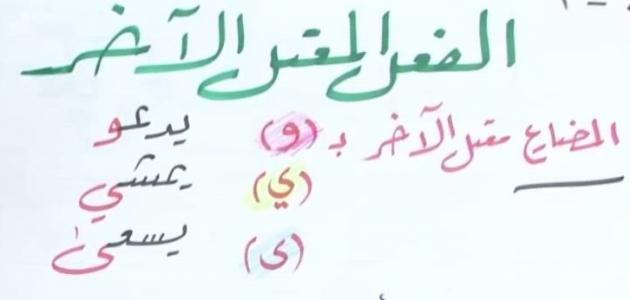 الفعل المعتل الآخر
المضارع معتل الآخر بـ (و) يدعو
(ي) يمشي
(ى) يسعى